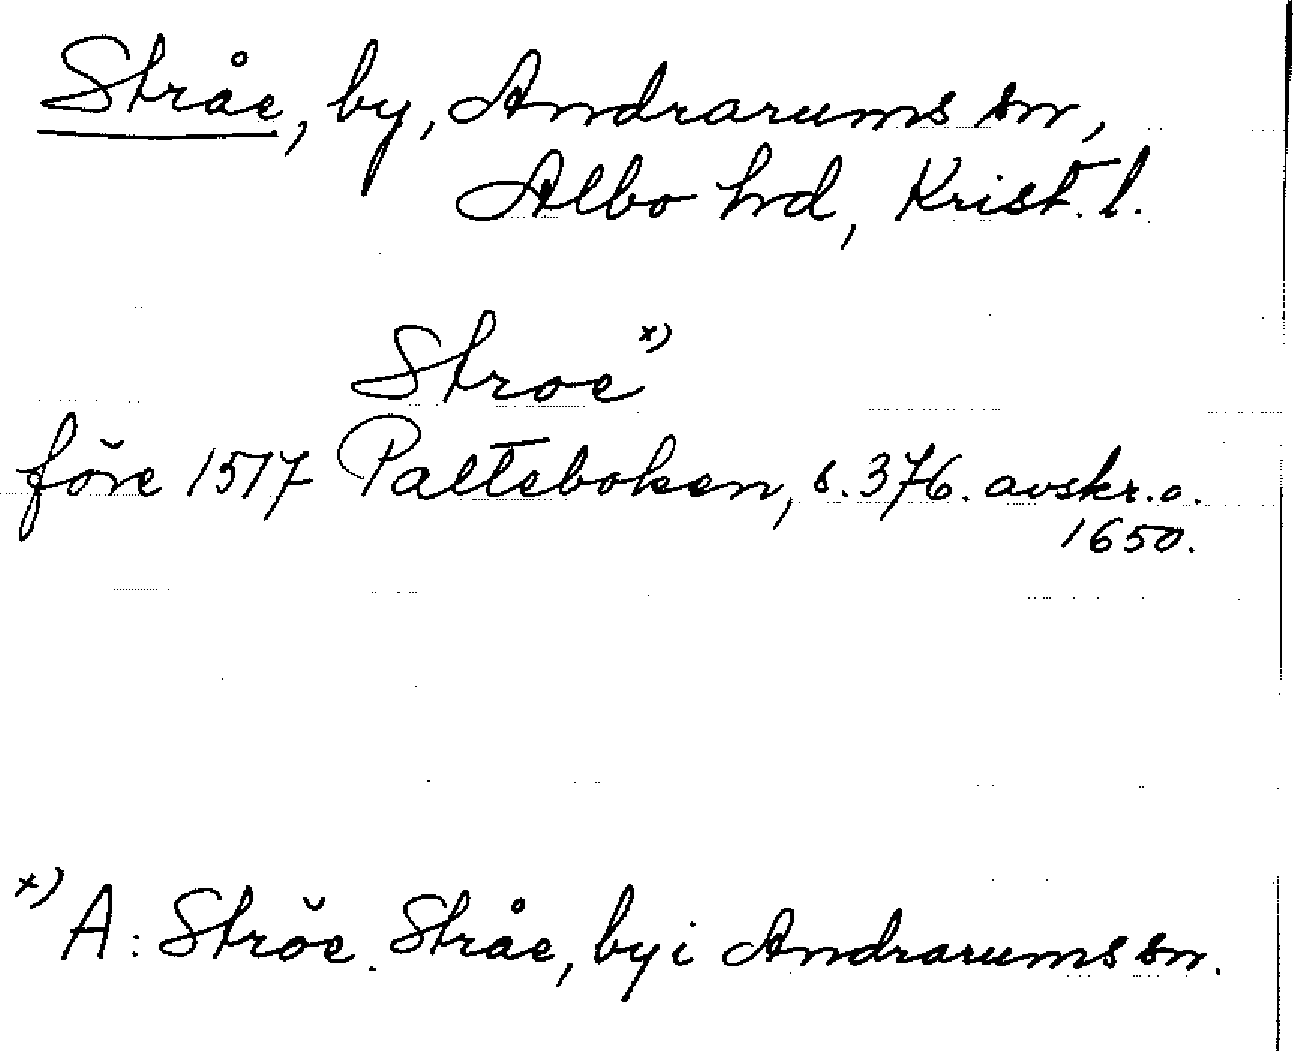 Stråe, by, Andrarums sn,
Albo hd, Krist. l.
Stroe x)
före 1517 Palteboken, s. 376. avskr. o.
1650.
x) A: Ströe. Stråe, by i Andrarums sn.